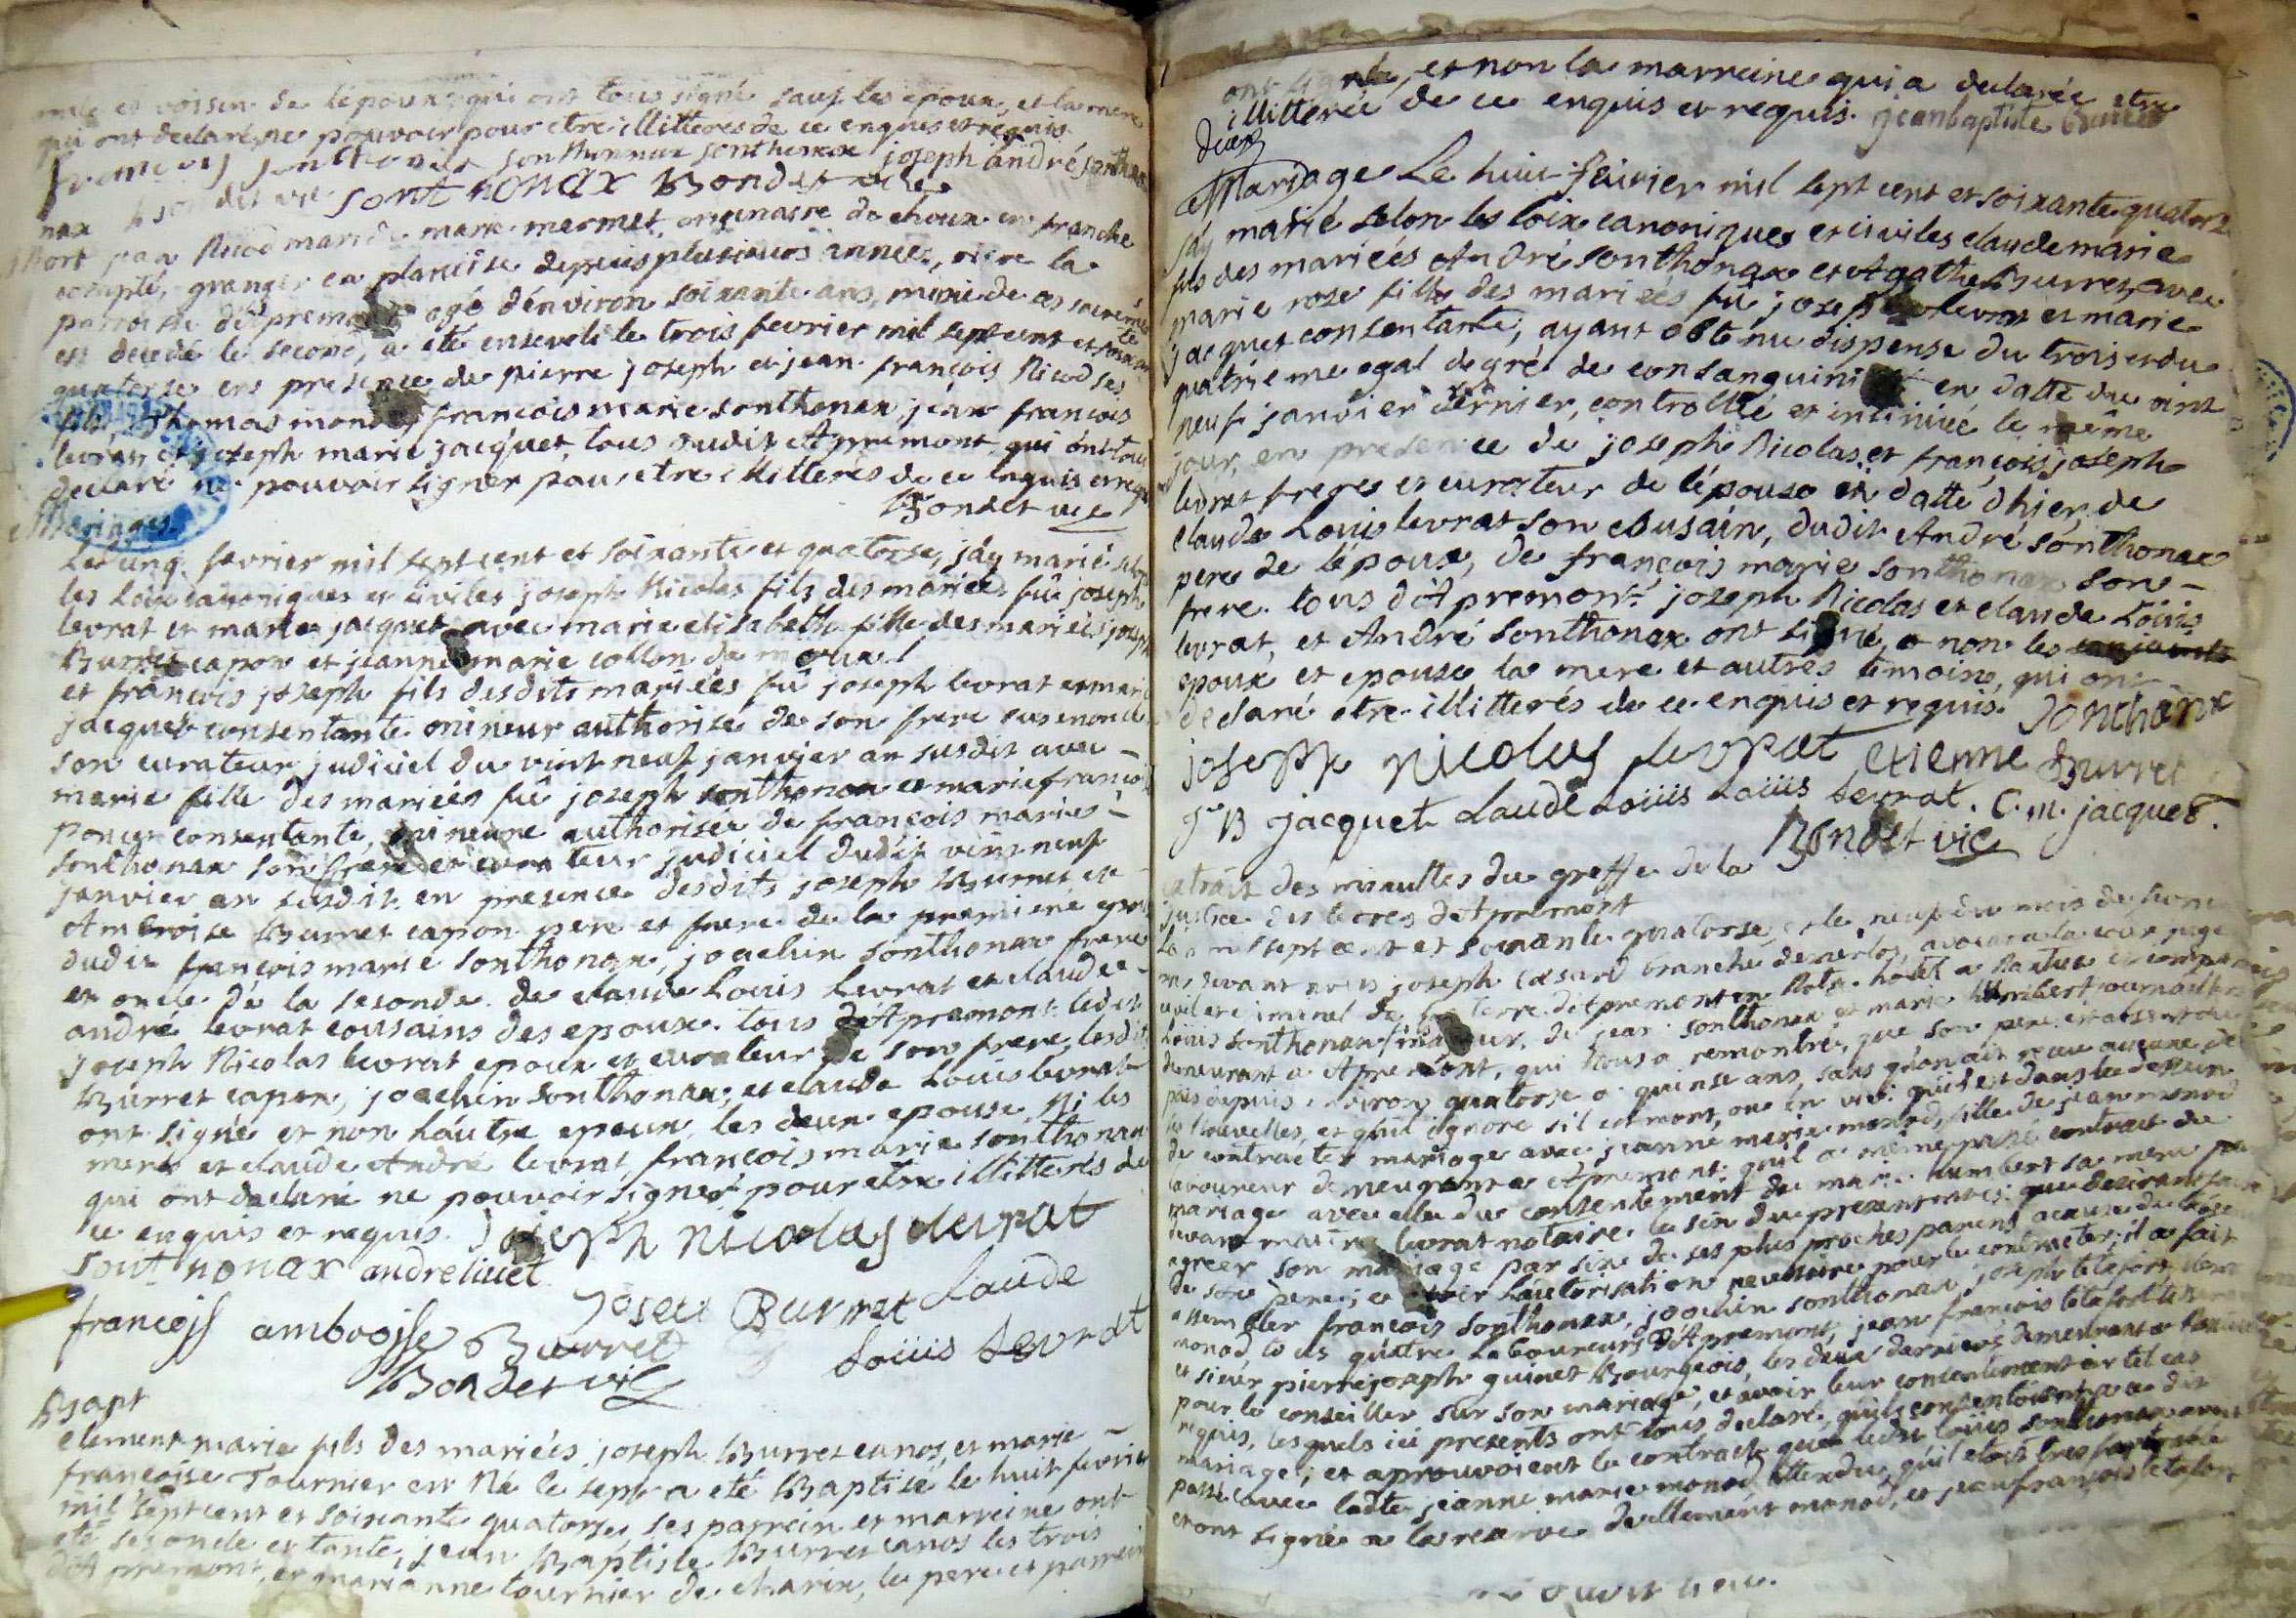 amis et voisin de lepoux qui ont tous signé sauf les epoux, et la mere
qui ont declaré ne pouvoir pour etre illitteres de ce enquis et requis
francois sonthonax sonthonnax sonthonax joseph andré sontho
nax sont nonax Bondet vic
Mort jean Nicod mari de marie mermet, originaire de choux en franche
compté, granger en planeise depuis plusieurs années, riere la
parroisse d'apremont agé d'environ soixante ans, muni de ces sacréme
est decedé le second, a eté enseveli le trois fevrier mil sept cent et soixante
quatorse en presence de pierre joseph et jean françois Nicod ses
fils, thomas monod, francois marie sonthonax, jean francois
levrat et joseph marie jacquet, tous dudit Appremont qui ont tous
declaré ne pouvoir signer pour etre illitterés de ce enquis et requis
Bondet vic
Mariages
Le cinq fevrier mil sept cent et soixante et quatorse, j'ay marié selon
les loix canoniques et civiles joseph Nicolas fils des mariées fû joseph
levrat et marie jacquet avec marie elisabeth fille des mariées joseph
Burret capon et jeanne marie collon de
et francois joseph fils desdits mariées fû joseph levrat et marie
jacquet consentante mineur authorisé de son frere susnommé
son curateur judiciel du vint neuf janvier an susdit avec –
marie fille des mariées fû joseph sonthonax et marie franço
poncet consentante, mineure authorisée de françois marie –
sonthonax son frere et curateur judiciel dudit vint neuf
janvier an susdit en presence desdits joseph Burret et
Ambroise Burret capon pere et frere de la premiere epouse
dudit françois marie sonthonax, joachin sonthonax frere
et oncle de la seconde. de claude Louis Levrat et claude
andré levrat cousains des epoux. tous d'Apremont ledit
joseph Nicolas levrat epoux et curateur de son frere, lesdits
Burret capon, joachin sonthonax, et claude Louis levrat
ont signé et non l'autre epoux, les deux epouse, Ni les
meres et claude André levrat, françois marie sonthonax
qui ont declaré ne pouvoir signer pour etre illitterés de
ce enquis et requis. joseph nicolas levrat
sont nonax andre livet
francoiss ambroisse Burret Joseu Burret Laude
Louiis Levrat
Bondet vic
Bapt
clement marie fils des mariées joseph Burret canos, et marie –
françoise Tournier est Né le sept a eté Baptisé le huit fevrier
mil sept cent et soixante quatorse, ses parrein et marreine ont
eté ses oncle et tante, jean Baptiste Burret canos les trois
d'Apremont, et marianne tournier de charix, le pere et parrein
ont signé, et non la marreine qui a declarée etre
illitterée de ce enquis et requis. jeanbaptiste Burret
deux
Mariage Le huit fevrier mil sept cent et soixante quatorz
j'ay marié selon les loix canoniques et civiles claude marie
fils des mariéés André sonthonax et Agathe Burret, avec
marie rose fille des mariéés fû joseph levrat et marie
jacquet consentante, ayant obtenu dispense du trois et du
quatrieme egal degré de consanguinité en datte du vint
neuf janvier dernier, controllée et insinuée le même
jour, en presence de joseph Nicolas et françois joseph
levrat freres et curateur de l'épouse en datte d'hier, de
claude Louis levrat son cousain, dudit André sonthonax
pere de l'époux, de françois marie sonthonax son –
frere. tous d'Apremont. joseph Nicolas et claude Louis
levrat, et André sonthonax ont signé, a non les conjoints
epoux et epouse la mere et autres temoins, qui ont
declaré etre illitterés de ce enquis et requis. Sonthonax
joseph nicolas levrat etienne Burret
J B jacquet Laude Louiis Louiis Levrat. C. m. jacquet.
Bondet vic
extrait des minuttes du greffe de la
justice des terres d'Apremont
L'an mil sept cent et soixante quatorse, et le neuf du mois de fevrier
par devant nous joseph branche avocat a la cour juge
civil et criminel de la terre d'Apremont en hotel a Nantua est comparu
Louis sonthonax majeur, de jean sonthonax et marie humbert
demeurant a Apremont, qui Nous a remontré, que son pere est absent du
païs depuis environ quatorse a quinse ans, sans qu'on ait reçu aucune de
ses Nouvelles, et qu'il ignore s'il est mort, ou en vie: qu'il est dans le dessein
de contracter mariage avec jeanne marie monod, fille de jean monod
laboureur demeurant a Apremont. qu'il a même passé contract de
mariage avec elle du consentement de marie humbert sa mere par
devant maitre levrat notaire. le six du present mois: que desirant faire
agréer son mariage par six de ses plus proches parens a cause de l'absence
de son pere; et avoir l'autorisation necessaire pour le contracter; il a fait
assembler françois sonthonax, joachin sonthonax joseph tetafort, clement
monod, tous quatre Laboureurs d'Apremont, jean françois tetafort
et sieur pierre joseph guinet Bourgeois, les deux derniers demeurant a Nantua
pour le conseiller sur son mariage, et avoir leur consentement en tel cas
requis, lesquels ici presents ont tous declaré, qu'ils consentoient a dit
mariage; et aprouvoient le contract, que ledit Louis sonthonax avoit
passé avec ladte jeanne marie monod, attendu, qu'il etoit tres
et ont signé a la reserve de clement monod, et jean françois tetafort